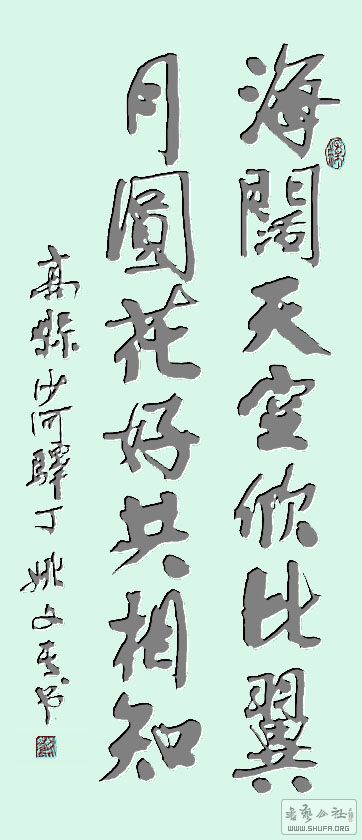 海闊天空欣比翼
月圓花好共相知
高縣沙河驛丁姚文
书法公社
WWW.SHUFA.ORG